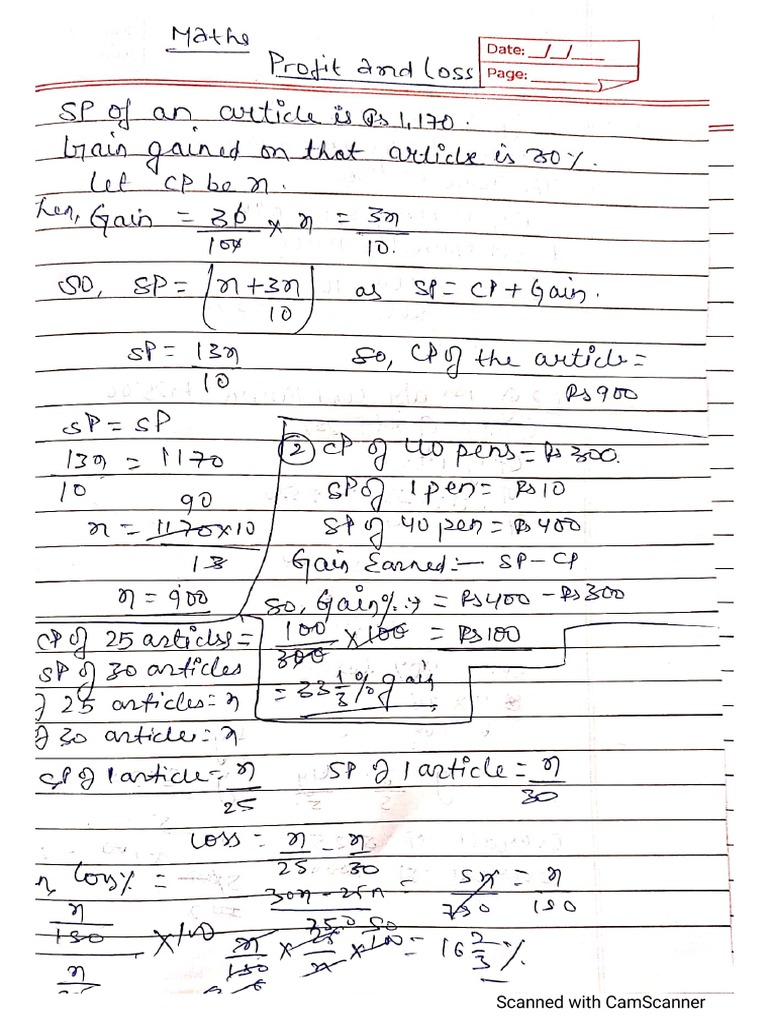 Maths
Profit and Loss
Date: _/_/___
Page: ______
SP of an article is Rs 1,170.
Gain gained on that article is 30%.
Let CP be x.
Then, Gain = 30/100 × x = 3x/10.
So, SP = (x + 3x/10) as SP = CP + Gain.
SP = 13x/10
So, CP of the article =
Rs 900
SP = SP
13x/10 = 1170
90
x = 1170×10/13
x = 900
② CP of 40 pens = Rs 300.
SP of 1 pen = Rs 10
SP of 40 pen = Rs 400
Gain Earned:- SP - CP
So, Gain% :→ = Rs 400 - Rs 300
100/300 × 100 = Rs 100
= 33 1/3 % gain
CP of 25 articles =
SP of 30 articles
25 articles = x
30 article = x
CP of 1 article = x/25
SP of 1 article = x/30
Loss = x/25 - x/30
30x - 25x/750 = 5x/750 = x/150
Loss% =
x/150 × 100
x/150 × 25/x × 100 = 16 2/3 %
Scanned with CamScanner